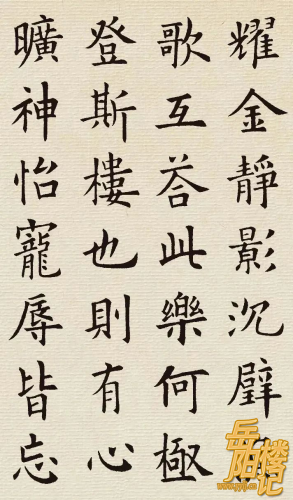 耀金靜影沉璧
歌互荅此樂何極
登斯樓也則有心
曠神怡寵辱皆忘
岳阳楼记